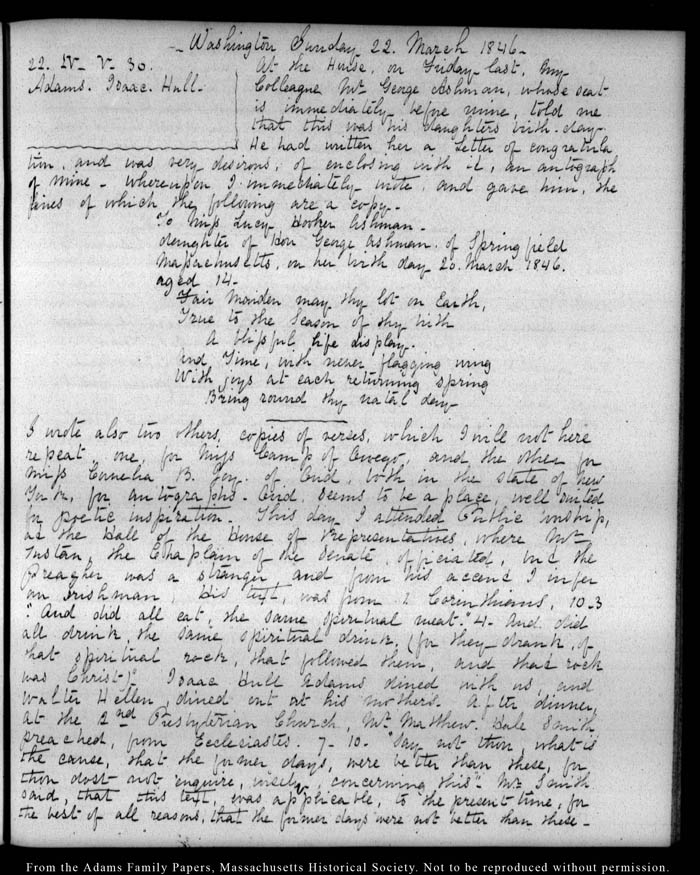 Washington Sunday 22. March 1846-
22. IV- V- 30.
At the House, on Friday last, My
Adams. Isaac. Hull-
Colleague Mr George Ashmun, whose seat
is immediately before mine, told me
that this was his daughters birth-day-
He had written her a Letter of congratula
tion, and was very desirous, of enclosing with it, an autograph
of mine - whereupon I immediately wrote, and gave him, the
lines of which the following are a copy-
To Miss Lucy Hooker Ashmun-
daughter of Hon George Ashmun of Springfield
Massachusetts, on her birth day 20. March 1846.
aged 14-
Fair Maiden may thy lot on Earth,
True to the Season of thy birth
A blissful life display-
And Time, with never flagging wing
With joys at each returning spring
Bring round thy natal day-
I wrote also two others, copies of verses, which I will not here
repeat, one, for Miss Camp of Owego, and the other for
Miss Cornelia B. Joy. of Ovid, both in the state of New
York, for autographs- Ovid, seems to be a place, well suited
for poetic inspiration- This day I attended Public worship,
at the Hall of the House of Representatives, where Mr
Tustan, the Chaplain of the Senate, officiated, but the
Preacher was a stranger and from his accent I infer
an Irishman, His text, was from 1 Corinthians, 10-3
"And did all eat, the same spiritual meat." 4- And did
all drink, the same spiritual drink, (for they drank, of
that spiritual rock, that followed them, and that rock
was Christ)" Isaac Hull Adams dined with us, and
Walter Hellen, dined out at his mothers. After dinner,
at the 2nd Presbyterian Church, Mr Matthew. Hale Smith
preached, from Ecclesiastes. 7-10- "Say not thou, what is
the cause, that the former days, were better than these, for
thou dost not enquire, wisely, concerning this". Mr Smith
said, that this text, was applicable, to the present time, for
the best of all reasons, that the former days were not better than these-
From the Adams Family Papers, Massachusetts Historical Society. Not to be reproduced without permission.